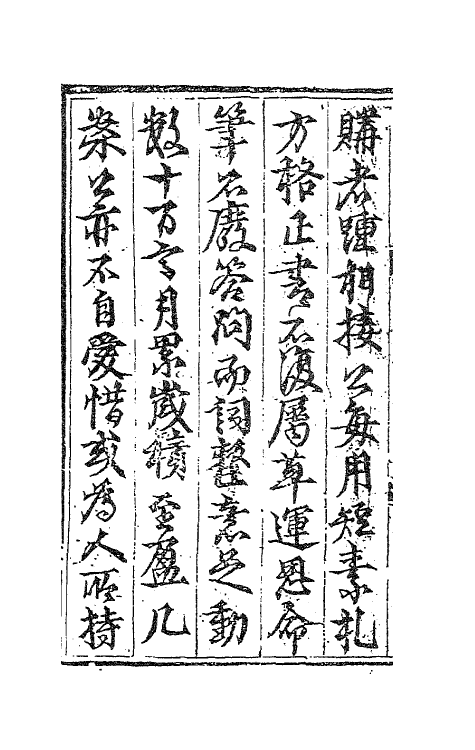 購者踵相接公每用短素札
方格正書不復屬草運思命
筆不廢答問而詞整意足動
數十百言月累歲積至盈几
案公亦不自愛惜或為人所持